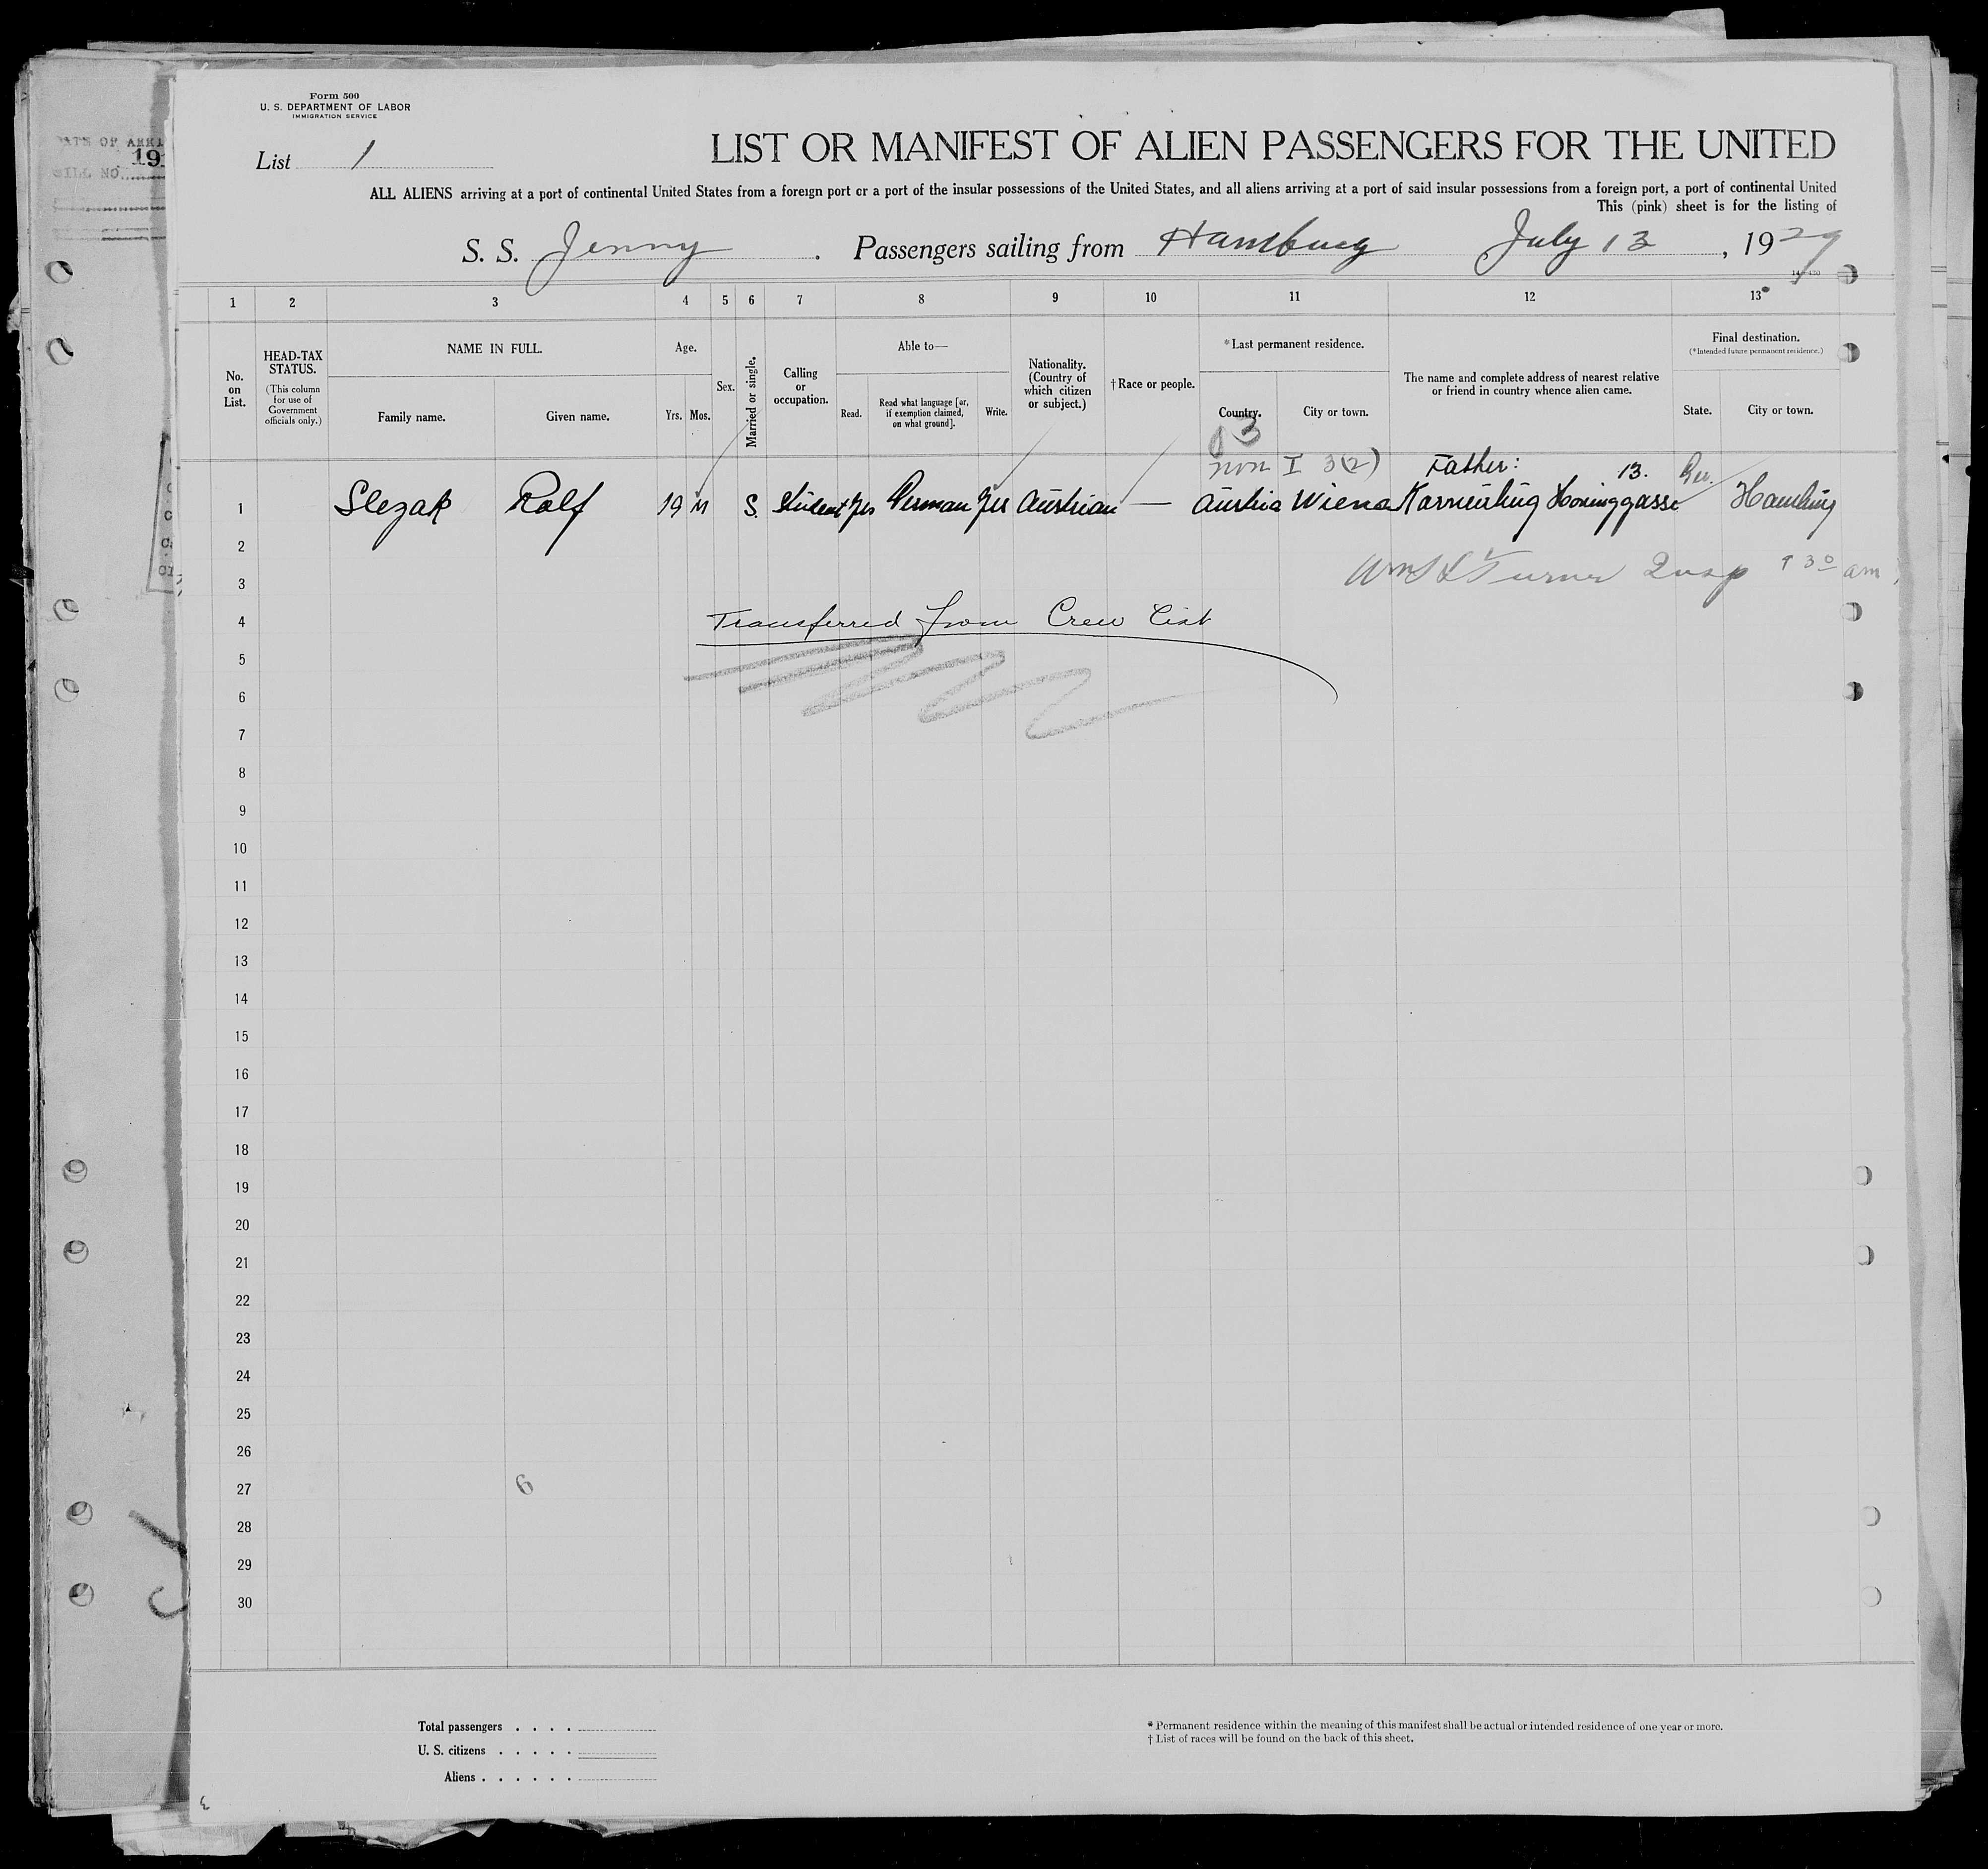 Form 500
U. S. DEPARTMENT OF LABOR
IMMIGRATION SERVICE
List 1
LIST OR MANIFEST OF ALIEN PASSENGERS FOR THE UNITED
ALL ALIENS arriving at a port of continental United States from a foreign port or a port of the insular possessions of the United States, and all aliens arriving at a port of said insular possessions from a foreign port, a port of continental United
This (pink) sheet is for the listing of
S. S. Jenny . Passengers sailing from Hamburg July 13, 1929
1 2 3 4 5 6 7 8 9 10 11 12 13
No. on List.
HEAD-TAX STATUS.
(This column for use of Government officials only.)
NAME IN FULL.
Family name. Given name.
Age.
Yrs. Mos.
Sex.
Married or single.
Calling or occupation.
Able to—
Read. Read what language [or, if exemption claimed, on what ground]. Write.
Nationality. (Country of which citizen or subject.)
†Race or people.
*Last permanent residence.
Country. City or town.
The name and complete address of nearest relative or friend in country whence alien came.
Final destination.
(*Intended future permanent residence.)
State. City or town.
non I 3(2) Father: 13. Ger.
1 Slezak Ralf 19 M S. Student yes German yes Austrian — Austria Wiena Karneuburg Honinggasse Hamburg
2
3 Turner Insp 930 am
4 Transferred from Crew List
5
6
7
8
9
10
11
12
13
14
15
16
17
18
19
20
21
22
23
24
25
26
27 6
28
29
30
Total passengers . . . .
U. S. citizens . . . . .
Aliens . . . . . .
* Permanent residence within the meaning of this manifest shall be actual or intended residence of one year or more.
† List of races will be found on the back of this sheet.